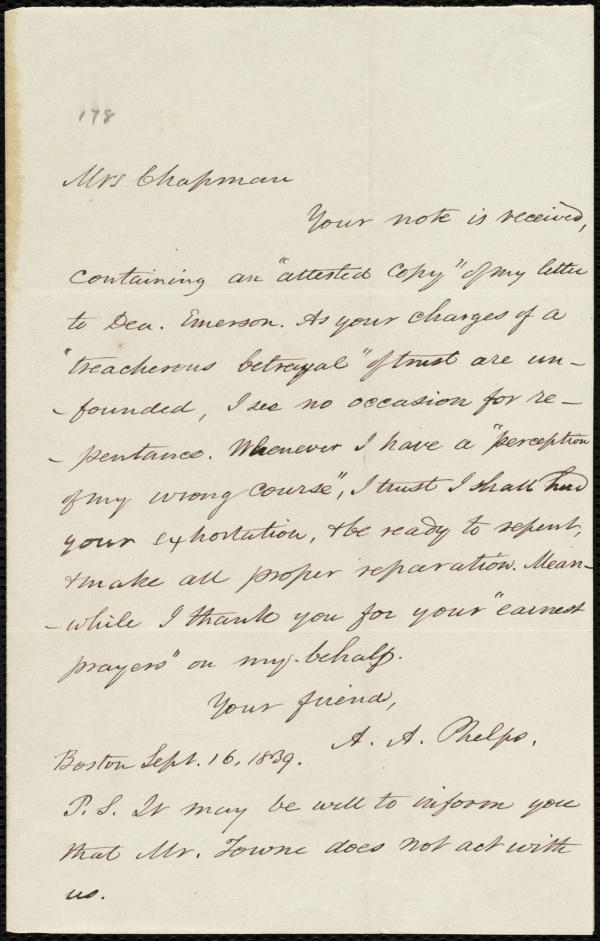 178
Mrs Chapman
Your note is received,
containing an "attested copy" of my letter
to Dea. Emerson. As your charges of a
"treacherous betrayal" of trust are un-
-founded, I see no occasion for re-
-pentance. Whenever I have a "perception
of my wrong course", I trust I shall heed
your exhortation, & be ready to repent,
& make all proper reparation. Mean-
-while I thank you for your "earnest
prayers" on my behalf.
Your friend,
A. A. Phelps.
Boston Sept. 16, 1839.
P. S. It may be well to inform you
that Mr. Towne does not act with
us.